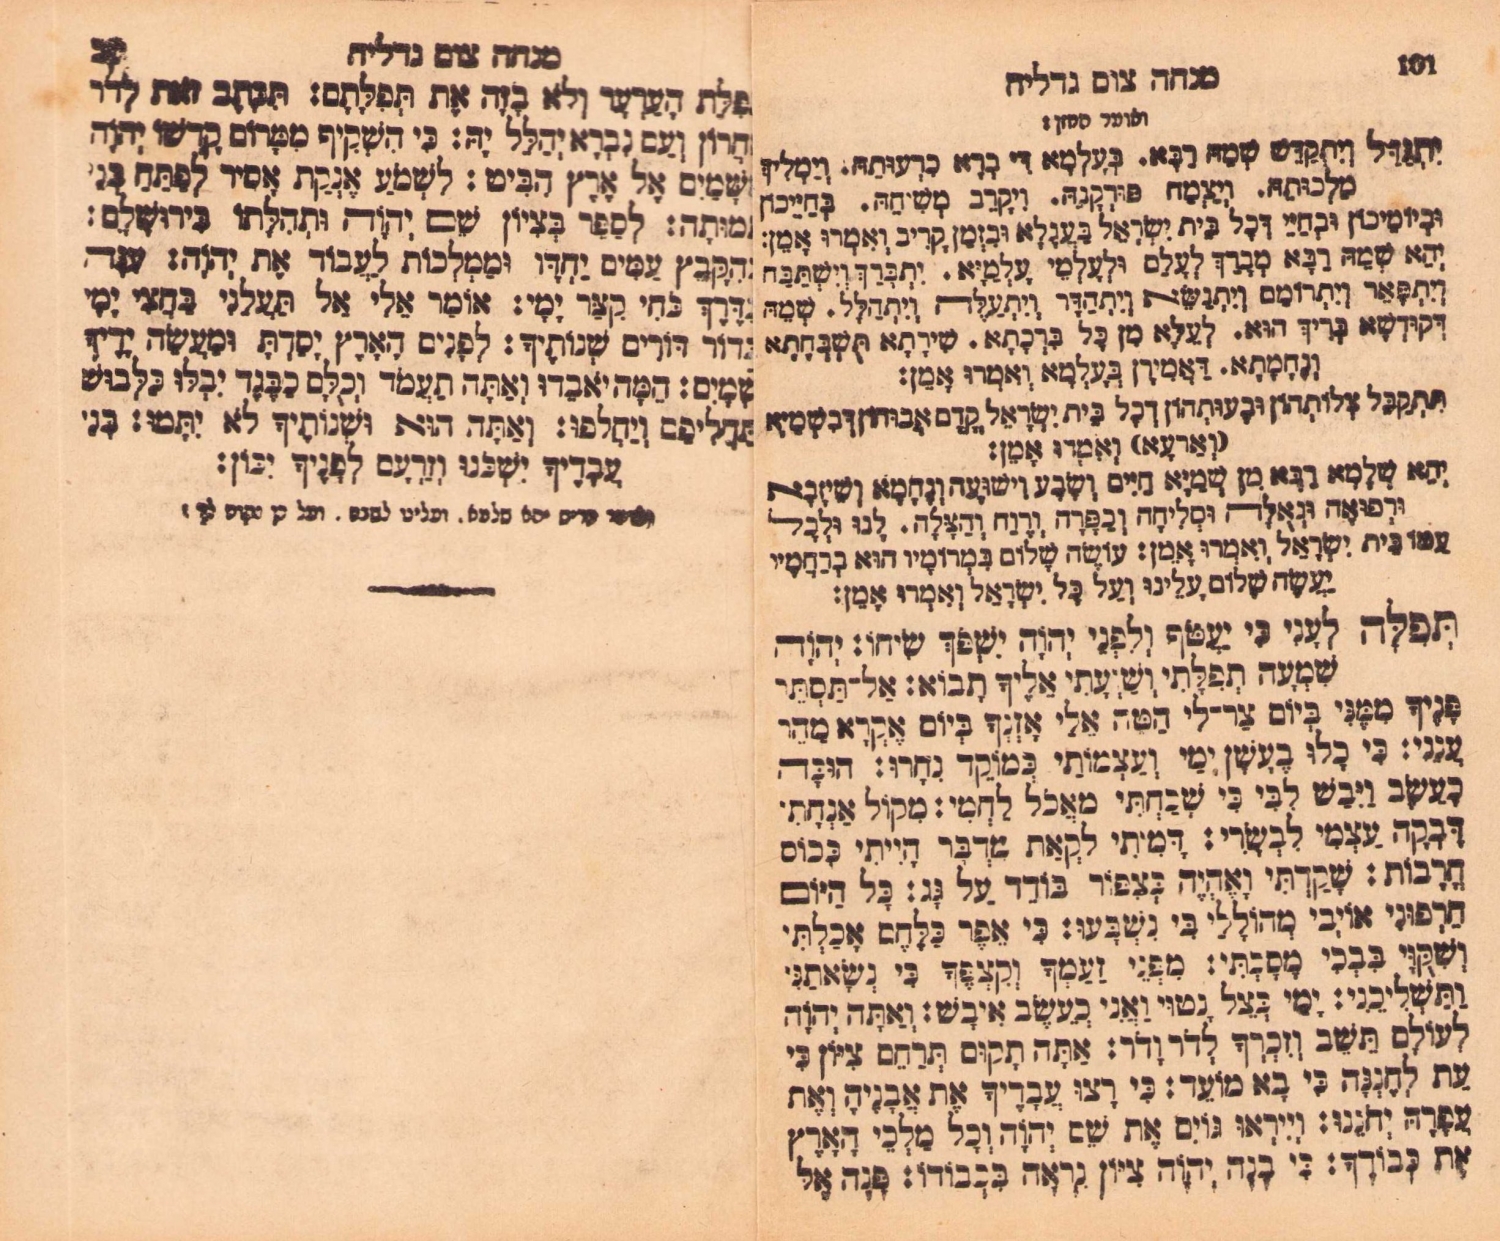 101
מנחה צום גדליה
ואומר החזן:
יִתְגַּדַּל וְיִתְקַדַּשׁ שְׁמֵהּ רַבָּא. בְּעָלְמָא דִּי בְרָא כִרְעוּתֵהּ. וְיַמְלִיךְ
מַלְכוּתֵהּ. וְיַצְמַח פּוּרְקָנֵהּ. וִיקָרֵב מְשִׁיחֵהּ. בְּחַיֵּיכוֹן
וּבְיוֹמֵיכוֹן וּבְחַיֵּי דְּכָל בֵּית יִשְׂרָאֵל בַּעֲגָלָא וּבִזְמַן קָרִיב וְאִמְרוּ אָמֵן:
יְהֵא שְׁמֵהּ רַבָּא מְבָרַךְ לְעָלַם וּלְעָלְמֵי עָלְמַיָּא. יִתְבָּרַךְ וְיִשְׁתַּבַּח
וְיִתְפָּאַר וְיִתְרוֹמַם וְיִתְנַשֵּׂא וְיִתְהַדָּר וְיִתְעַלֶּה וְיִתְהַלָּל. שְׁמֵהּ
דְּקוּדְשָׁא בְּרִיךְ הוּא. לְעֵלָּא מִן כָּל בִּרְכָתָא. שִׁירָתָא תֻּשְׁבְּחָתָא
וְנֶחָמָתָא. דַּאֲמִירָן בְּעָלְמָא וְאִמְרוּ אָמֵן:
תִּתְקַבֵּל צְלוֹתְהוֹן וּבָעוּתְהוֹן דְכָל בֵּית יִשְׂרָאֵל קֳדָם אֲבוּהוֹן דְּבִשְׁמַיָּא
(וְאַרְעָא) וְאִמְרוּ אָמֵן:
יְהֵא שְׁלָמָא רַבָּא מִן שְׁמַיָּא חַיִּים וְשָׂבָע וִישׁוּעָה וְנֶחָמָא וְשֵׁיזָבָא
וּרְפוּאָה וּגְאֻלָּה וּסְלִיחָה וְכַפָּרָה וְרֶוַח וְהַצָּלָה. לָנוּ וּלְכָל
עַמּוֹ בֵּית יִשְׂרָאֵל וְאִמְרוּ אָמֵן: עוֹשֶׂה שָׁלוֹם בִּמְרוֹמָיו הוּא בְרַחֲמָיו
יַעֲשֶׂה שָׁלוֹם עָלֵינוּ וְעַל כָּל יִשְׂרָאֵל וְאִמְרוּ אָמֵן:
תְּפִלָּה לְעָנִי כִּי יַעֲטֹף וְלִפְנֵי יְהוָֹה יִשְׁפֹּךְ שִׂיחוֹ: יְהוָֹה
שִׁמְעָה תְפִלָּתִי וְשַׁוְעָתִי אֵלֶיךָ תָבוֹא: אַל־תַּסְתֵּר
פָּנֶיךָ מִמֶּנִּי בְּיוֹם צַר־לִי הַטֵּה אֵלַי אָזְנֶךָ בְּיוֹם אֶקְרָא מַהֵר
עֲנֵנִי: כִּי כָלוּ בְעָשָׁן יָמָי וְעַצְמוֹתַי כְּמוֹקֵד נִחָרוּ: הוּכָּה
כָעֵשֶׂב וַיִּבַשׁ לִבִּי כִּי שָׁכַחְתִּי מֵאֲכֹל לַחְמִי: מִקּוֹל אַנְחָתִי
דָּבְקָה עַצְמִי לִבְשָׂרִי: דָּמִיתִי לִקְאַת מִדְבָּר הָיִיתִי כְּכוֹס
חֳרָבוֹת: שָׁקַדְתִּי וָאֶהְיֶה כְּצִפּוֹר בּוֹדֵד עַל גָּג: כָּל הַיּוֹם
חֵרְפוּנִי אוֹיְבָי מְהוֹלָלַי בִּי נִשְׁבָּעוּ: כִּי אֵפֶר כַּלֶּחֶם אָכַלְתִּי
וְשִׁקֻּוַי בִּבְכִי מָסָכְתִּי: מִפְּנֵי זַעַמְךָ וְקִצְפֶּךָ כִּי נְשָׂאתַנִי
וַתַּשְׁלִיכֵנִי: יָמַי כְּצֵל נָטוּי וַאֲנִי כָּעֵשֶׂב אִיבָשׁ: וְאַתָּה יְהוָֹה
לְעוֹלָם תֵּשֵׁב וְזִכְרְךָ לְדֹר וָדֹר: אַתָּה תָקוּם תְּרַחֵם צִיּוֹן כִּי
עֵת לְחֶנְנָהּ כִּי בָא מוֹעֵד: כִּי רָצוּ עֲבָדֶיךָ אֶת אֲבָנֶיהָ וְאֶת
עֲפָרָהּ יְחֹנֵנוּ: וְיִירְאוּ גוֹיִם אֶת שֵׁם יְהוָֹה וְכָל מַלְכֵי הָאָרֶץ
אֶת כְּבוֹדֶךָ: כִּי בָנָה יְהוָֹה צִיּוֹן נִרְאָה בִּכְבוֹדוֹ: פָּנָה אֶל
מנחה צום גדליה
תְּפִלַּת הָעַרְעָר וְלֹא בָזָה אֶת תְּפִלָּתָם: תִּכָּתֶב זֹאת לְדֹר
אַחֲרוֹן וְעַם נִבְרָא יְהַלֵּל יָהּ: כִּי הִשְׁקִיף מִמְּרוֹם קָדְשׁוֹ יְהוָֹה
מִשָּׁמַיִם אֶל אֶרֶץ הִבִּיט: לִשְׁמֹעַ אֶנְקַת אָסִיר לְפַתֵּחַ בְּנֵי
תְמוּתָה: לְסַפֵּר בְּצִיּוֹן שֵׁם יְהוָֹה וּתְהִלָּתוֹ בִּירוּשָׁלָם:
בְּהִקָּבֵץ עַמִּים יַחְדָּו וּמַמְלָכוֹת לַעֲבוֹד אֶת יְהוָֹה: עִנָּה
בַדֶּרֶךְ כֹּחִי קִצַּר יָמָי: אוֹמַר אֵלִי אַל תַּעֲלֵנִי בַּחֲצִי יָמָי
בְּדוֹר דּוֹרִים שְׁנוֹתֶיךָ: לְפָנִים הָאָרֶץ יָסַדְתָּ וּמַעֲשֵׂה יָדֶיךָ
שָׁמָיִם: הֵמָּה יֹאבֵדוּ וְאַתָּה תַעֲמֹד וְכֻלָּם כַּבֶּגֶד יִבְלוּ כַּלְּבוּשׁ
תַּחֲלִיפֵם וְיַחֲלֹפוּ: וְאַתָּה הוּא וּשְׁנוֹתֶיךָ לֹא יִתָּמּוּ: בְּנֵי
עֲבָדֶיךָ יִשְׁכֹּנוּ וְזַרְעָם לְפָנֶיךָ יִכּוֹן:
ואומר קדיש יהא שלמא. ועלינו לשבח. ועל כן נקוה לך: